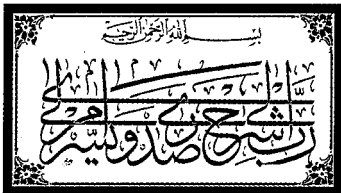 بسم الله الرحمن الرحيم
رب اشرح لي صدري ويسر لي أمري